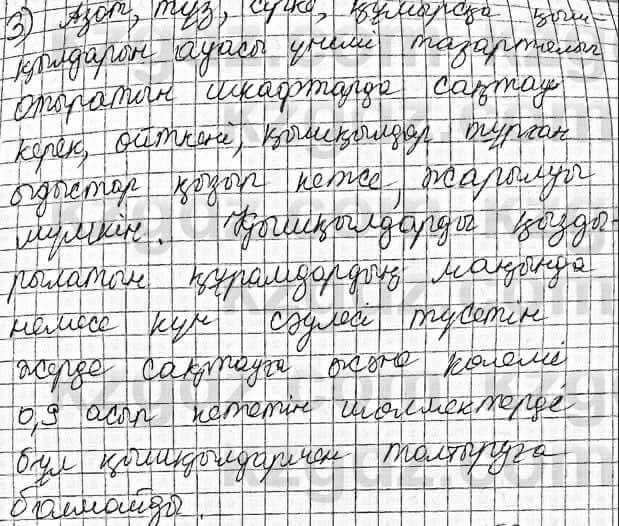 3) Азот, тұз, сірке, құмырсқа қыш-
қылдарын ауасы үнемі тазартылып
отыратын шкафтарда сақтау
керек, өйткені, қышқылдар тұрған
ыдыстар қызып кетсе, жарылуы
мүмкін. Қышқылдарды қызды-
рылатын құрамдардың маңында
немесе күн сәулесі түсетін
жерде сақтауға және көлемі
0,9 асып кететін шөлмектерде
бұл қышқылдармен толтыруға
болмайды.